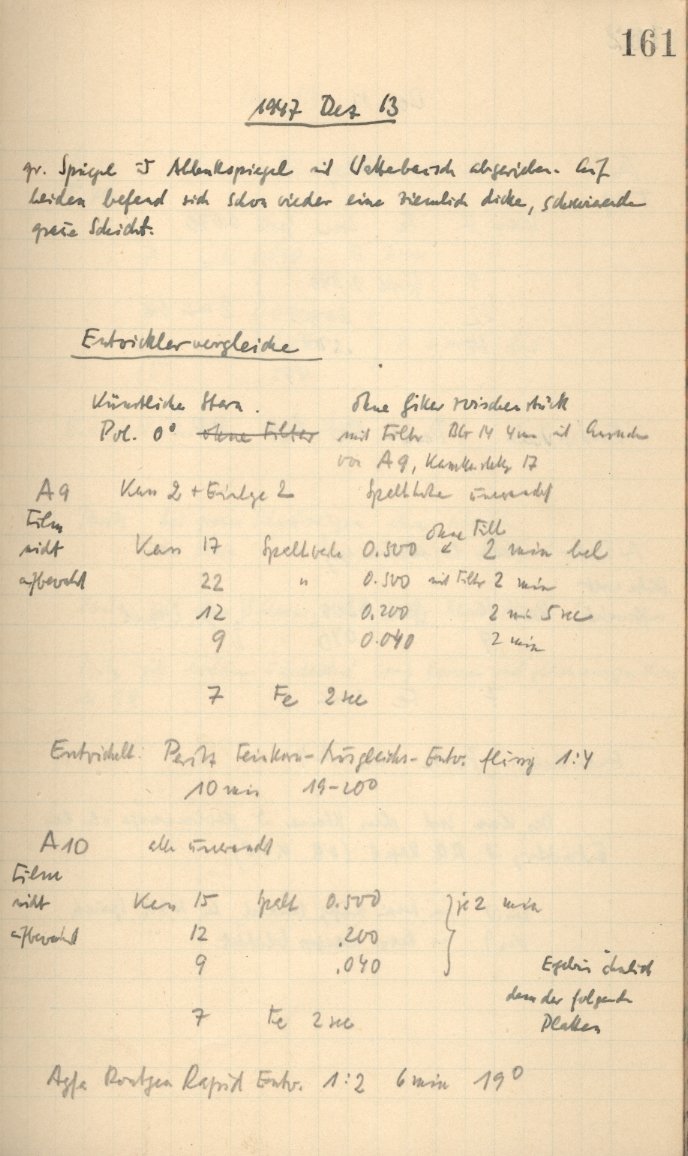 161
1947 Dez 13
gr. Spiegel u Ablenkspiegel mit Wattebausch abgerieben. Auf
beiden befand sich schon wieder eine ziemlich dicke, schmierende
graue Schicht.
Entwicklervergleiche
Künstliche Stern. ohne Filter zwischenstück
Pol. 0° ohne Filter mit Filter BG 14 4mm, mit
von A9, 17
A9 Kass 2 + Einlage 2 Spalthöhe unverändert
Film
nicht
aufbewahrt
ohne Filt
Kass 17 Spaltbreite 0.500 2 min bel
22 " 0.500 mit Filter 2 min
12 0.200 2 min 5 sec
9 0.040 2 min
7 Fe 2 sec
Entwickelt: Perutz Feinkorn-Ausgleichs-Entw. flüssig 1:4
10 min 19-20°
A10 alles unverändert
Film
nicht
aufbewahrt
Kass 15 Spalt 0.500 je 2 min
12 .200
9 .040
Ergebnis ähnlich
dem der folgenden
Platten
7 Fe 2 sec
Agfa Röntgen Rapid Entw. 1:2 6 min 19°